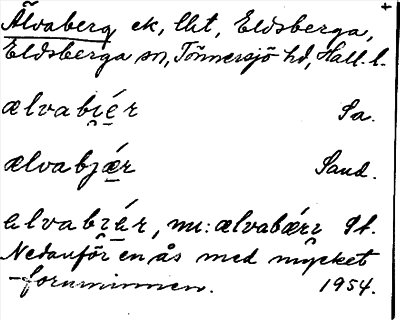 Älvaberg ek, lht, Eldsberga,
Eldsberga sn, Tönnersjö hd, Hall. l.
ælvabi̯ér Sa.
ælvabjǽr Sand.
ælvabi̯ǽr, nu: ælvabǽrı St.
Nedanför en ås med mycket
fornminnen. 1954.